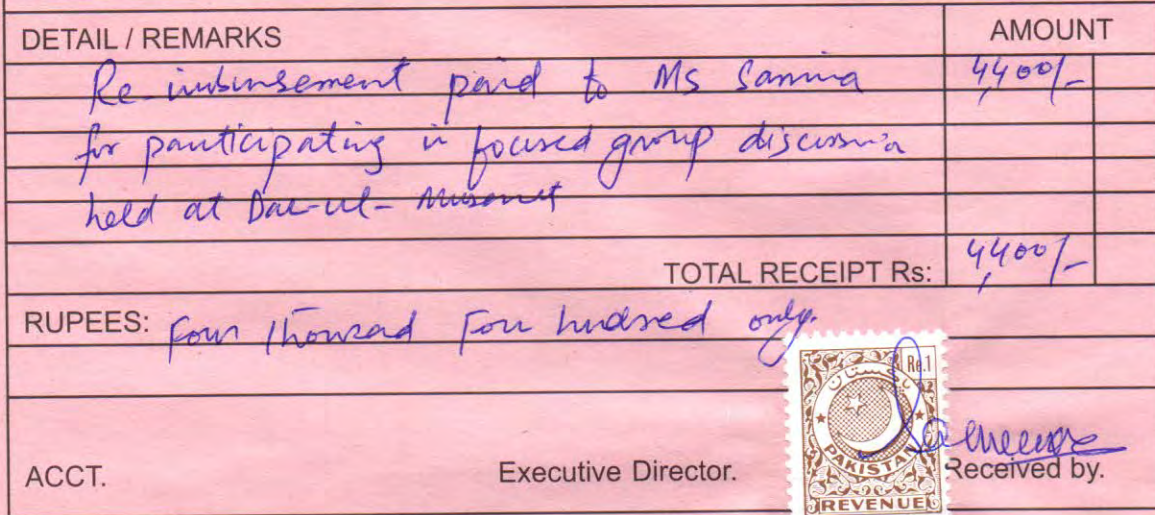 DETAIL / REMARKS AMOUNT
Re-imbursement paid to Ms Samina 4,400/-
for participating in focused group discussion
held at Dar-ul-
TOTAL RECEIPT Rs: 4,400/-
RUPEES: Four Thousand Four hundred only.
Re.1
پاکستان
PAKISTAN
REVENUE
ACCT. Executive Director. Received by.